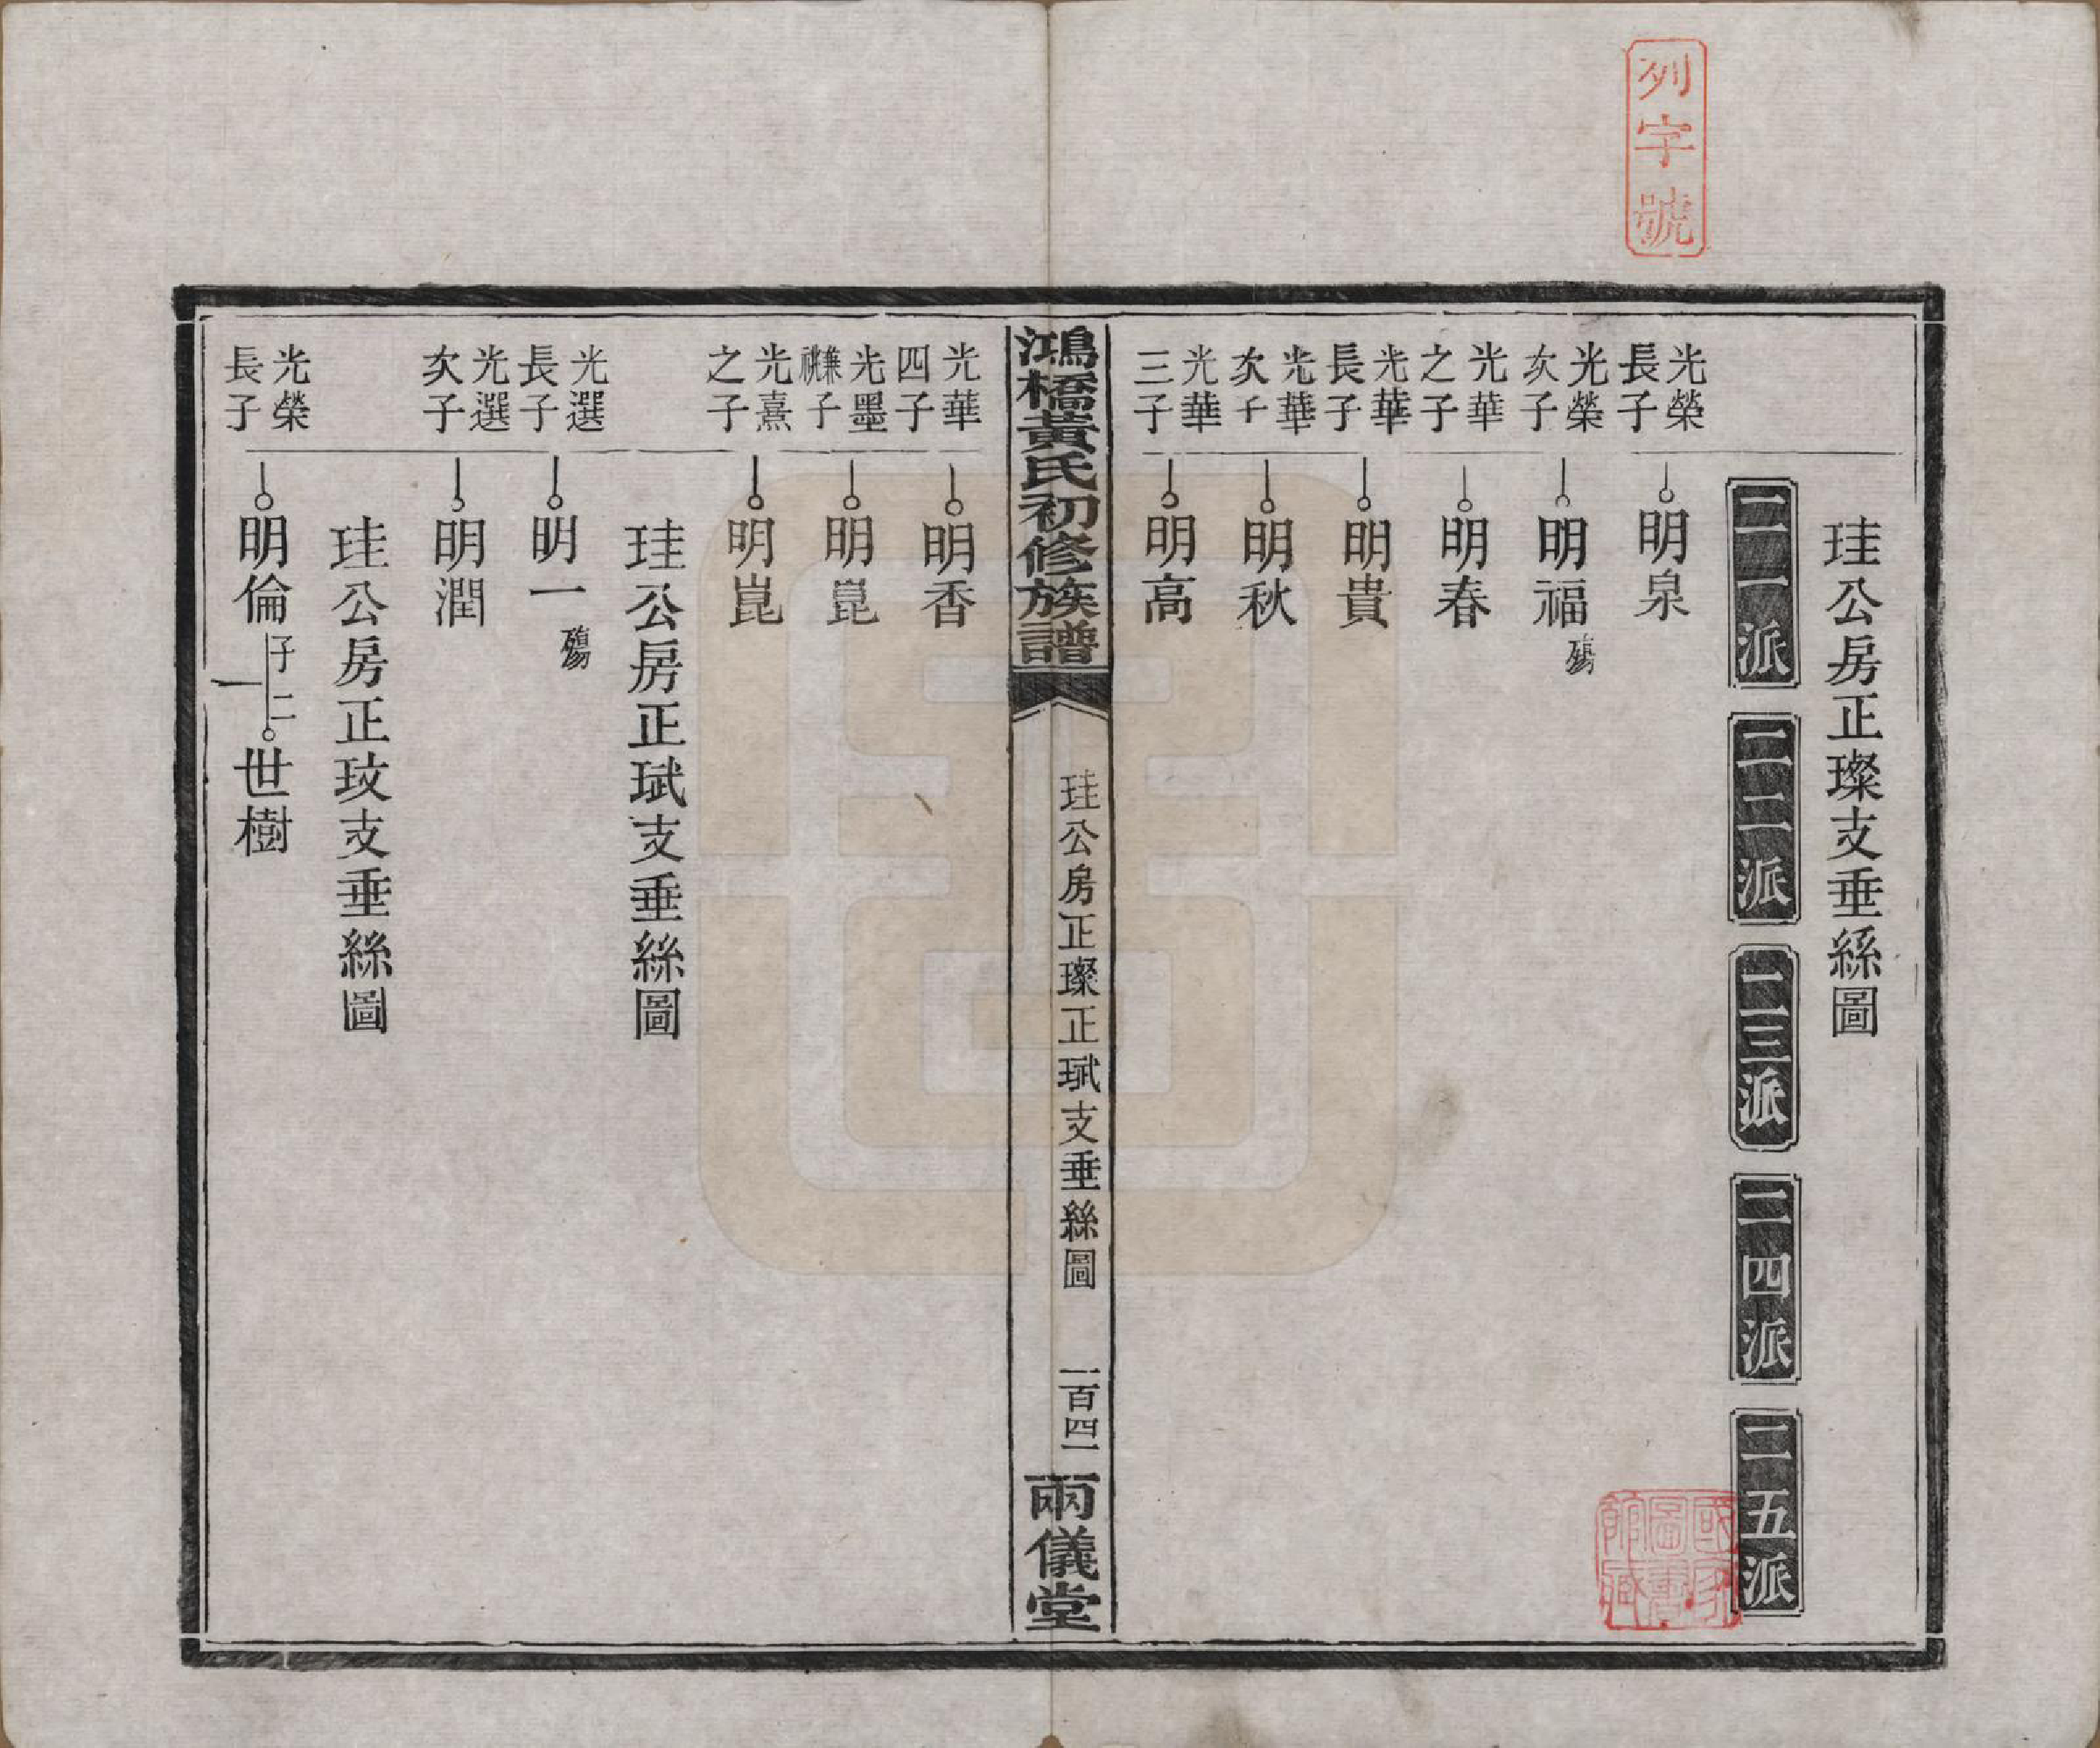 列字號
珪公房正璨支垂絲圖
二一派
二二派
二三派
二四派
二五派
光榮長子
明泉
光榮次子
明福 殤
光華之子
明春
光華長子
明貴
光華次子
明秋
光華三子
明高
國家圖書館藏
鴻橋黃氏初修族譜
珪公房正璨正珷支垂絲圖
一百四一
兩儀堂
光華四子
明香
光墨兼祧子
明崑
光熹之子
明崑
珪公房正珷支垂絲圖
光選長子
明一 殤
光選次子
明潤
珪公房正玟支垂絲圖
光榮長子
明倫 子二
世樹